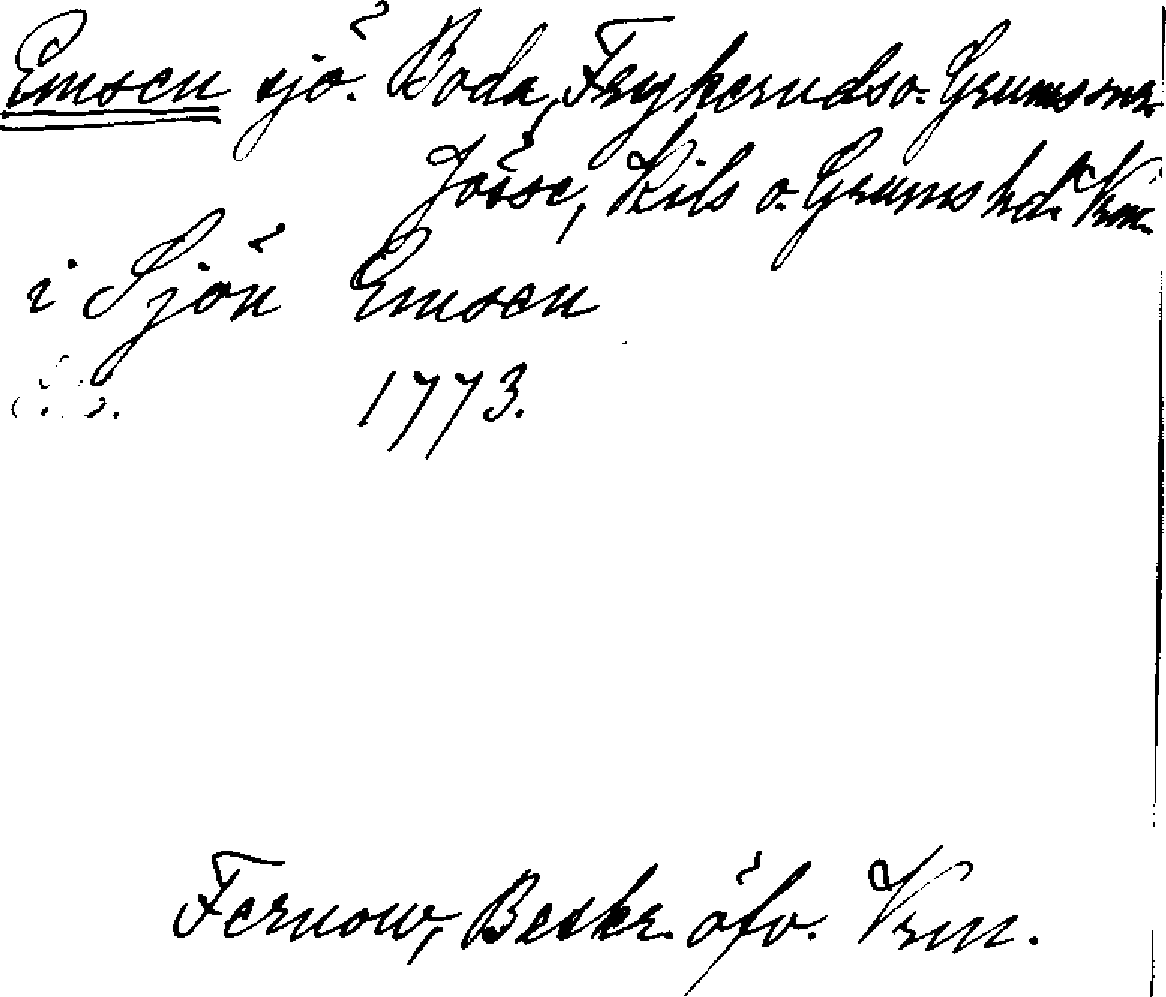 Emsen sjö. Boda, Frykeruds o. Grums snr.
Jösse, Kils o. Grums hd. Vrm.
i Sjön Emsen
1773.
Fernow, Beskr. öfv. Vrm.